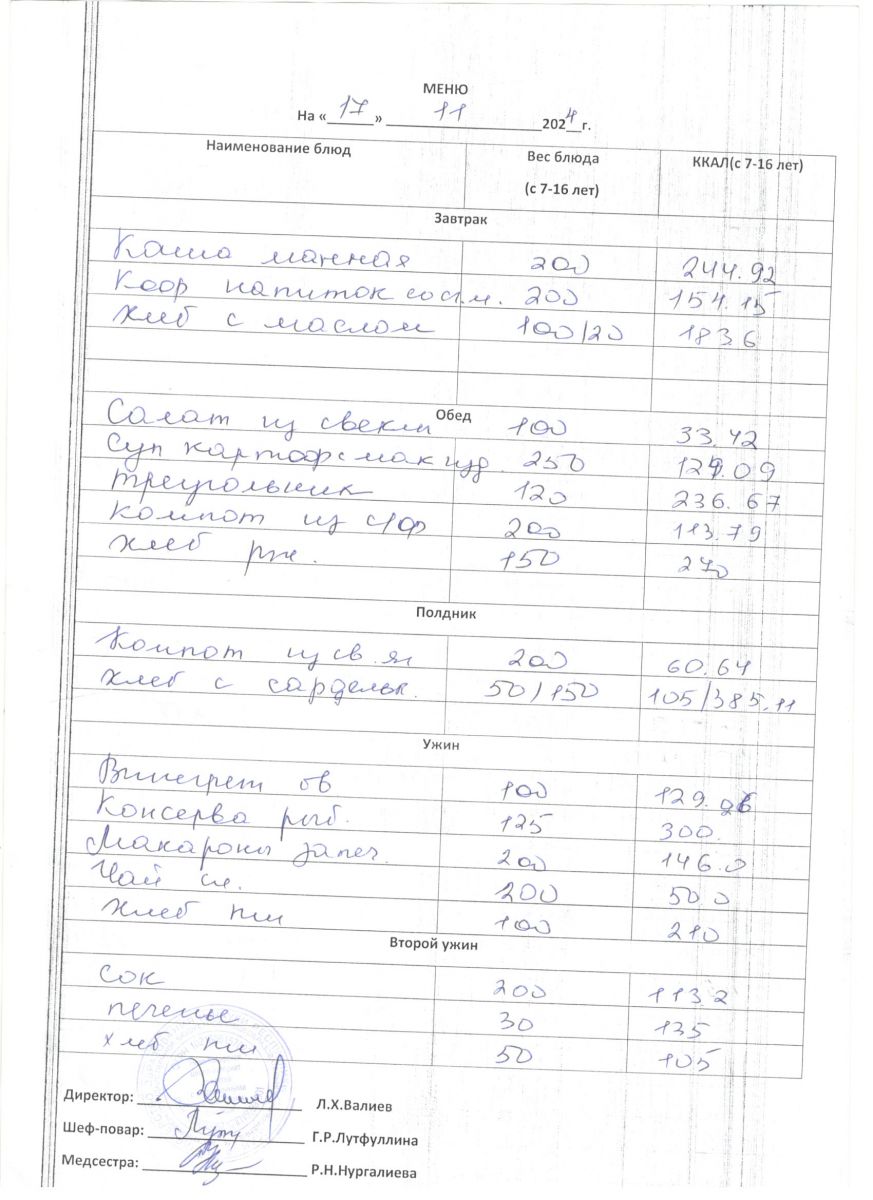 МЕНЮ
На «17» 11 2024 г.
Наименование блюд Вес блюда (с 7-16 лет) ККАЛ(с 7-16 лет)
Завтрак
Каша манная 200 244.92
Коф напиток со сг.м. 200 154.15
Хлеб с маслом 100/20 183.6
Обед
Салат из свеклы 100 33.42
Суп картоф с мак изд. 250 129.09
Треугольник 120 236.67
Компот из с/ф 200 113.79
Хлеб рж. 150 270
Полдник
Компот из св. ял 200 60.64
Хлеб с сардельк. 50/150 105/385.11
Ужин
Винегрет ов 100 129.26
Консерва рыб. 125 300.
Макароны запеч. 200 146.0
Чай сл. 200 50.0
Хлеб пш 100 210
Второй ужин
Сок 200 113.2
печенье 30 135
хлеб пш 50 105
Директор: Л.Х.Валиев
Шеф-повар: Г.Р.Лутфуллина
Медсестра: Р.Н.Нургалиева